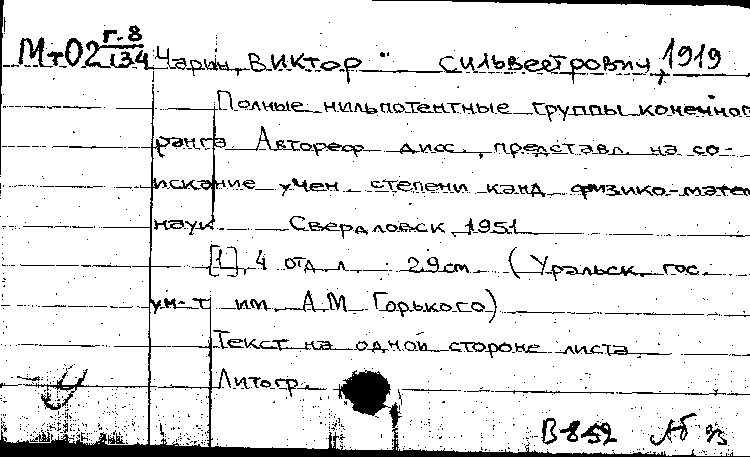 М+02 Г-8/134 Чарин, Виктор Сильвестрович, 1919
Полные нильпотентные группы конечного
ранга. Автореф дисс., представл. на со-
искание учен. степени канд физико-матем
наук. Свердловск, 1951.
[1], 4 отд л. 29см. (Уральск. гос.
ун-т им. А.М Горького)
Текст на одной стороне листа.
Литогр.
В-852